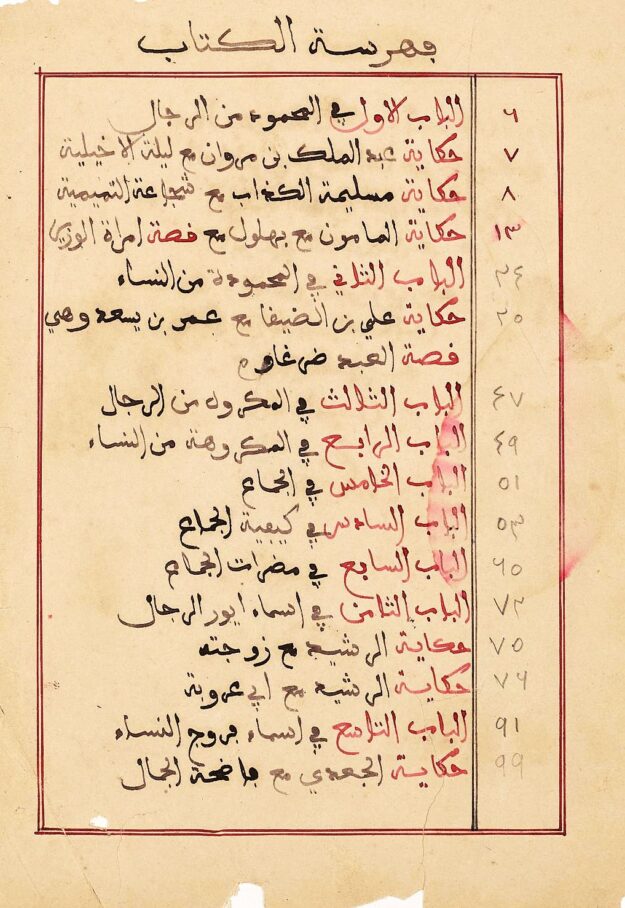 فهرسة الكتاب
٦ الباب الاول في المحمود من الرجال
٧ حكاية عبد الملك بن مروان مع ليلة الاخيلية
٨ حكاية مسليمة الكذاب مع شجاعة التميمية
١٣ حكاية المامون مع بهلول مع قصة امراة الوزير
٢٤ الباب الثاني في المحمودة من النساء
٢٥ حكاية علي بن الضيفا مع عمر بن يسعد وهي
قصة العبد ضرغام
٤٧ الباب الثالث في المكروه من الرجال
٤٩ الباب الرابع في المكروهة من النساء
٥١ الباب الخامس في الجماع
٥٣ الباب السادس في كيفية الجماع
٦٥ الباب السابع في مضرات الجماع
٧٢ الباب الثامن في اسماء ايور الرجال
٧٥ حكاية الرشيد مع زوجته
٧٦ حكاية الرشيد مع ابي عروبة
٩١ الباب التاسع في اسماء فروج النساء
٩٩ حكاية الجعدي مع فاضحة الجمال